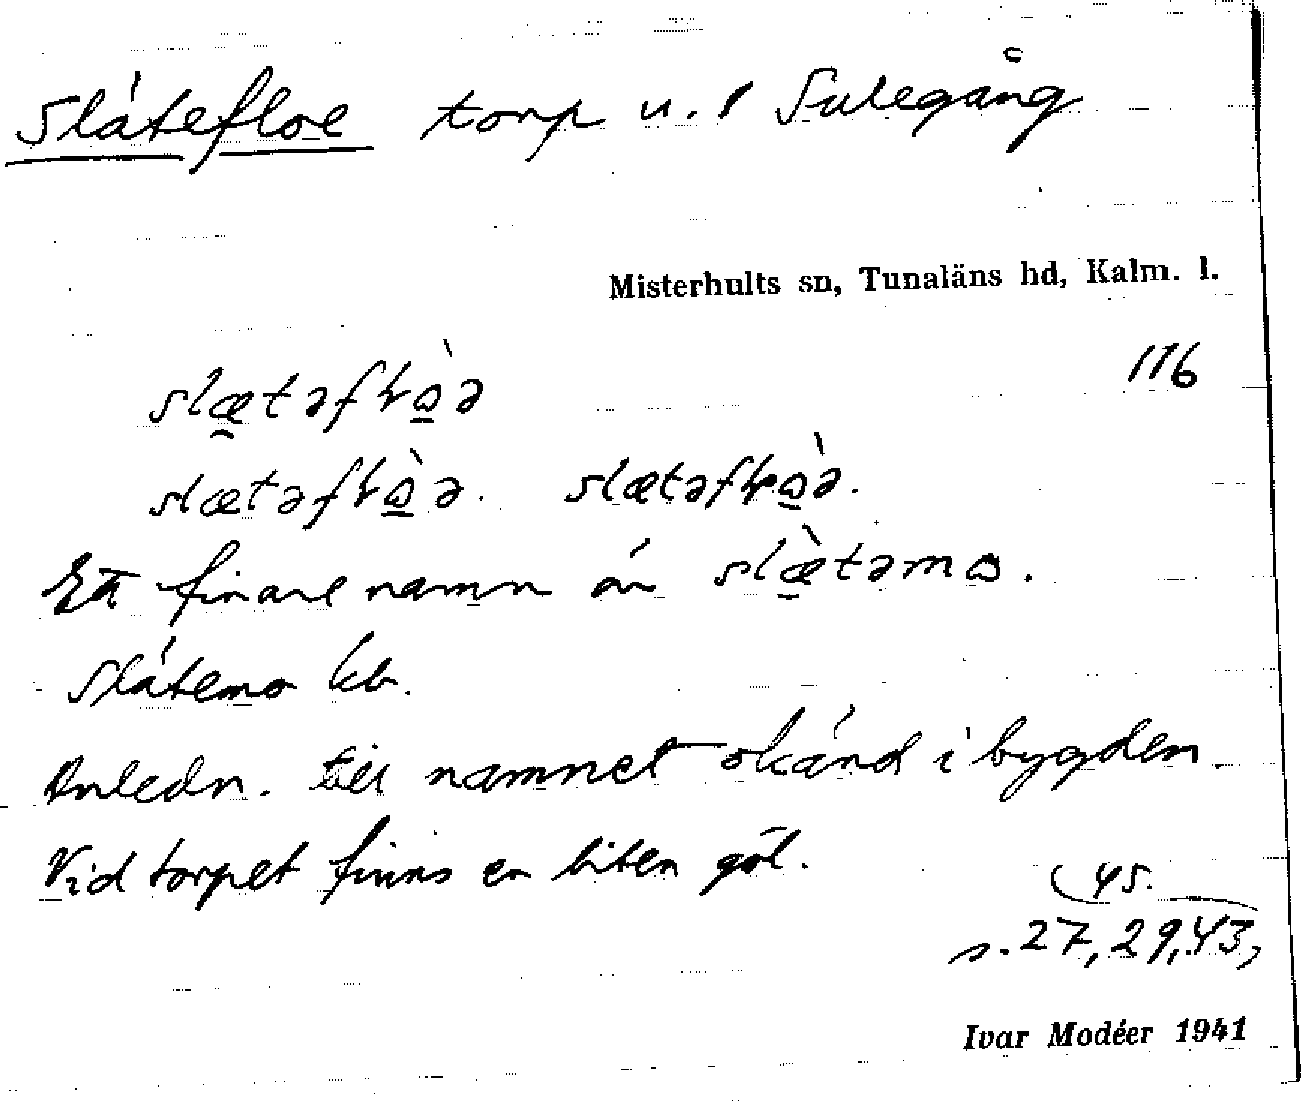 Slätefloe torp u. 1 Sulegång
Misterhults sn, Tunaläns hd, Kalm. l.
116
slætəfɫò̱ə
slætəfɫò̱ə. slætəfɫò̱ə.
Ett finare namn är slæ̀təmo.
Slätemo kb.
Anledn. till namnet okänd i bygden.
Vid torpet finns en liten göl.
45.
s. 27, 29, 43,
Ivar Modéer 1941